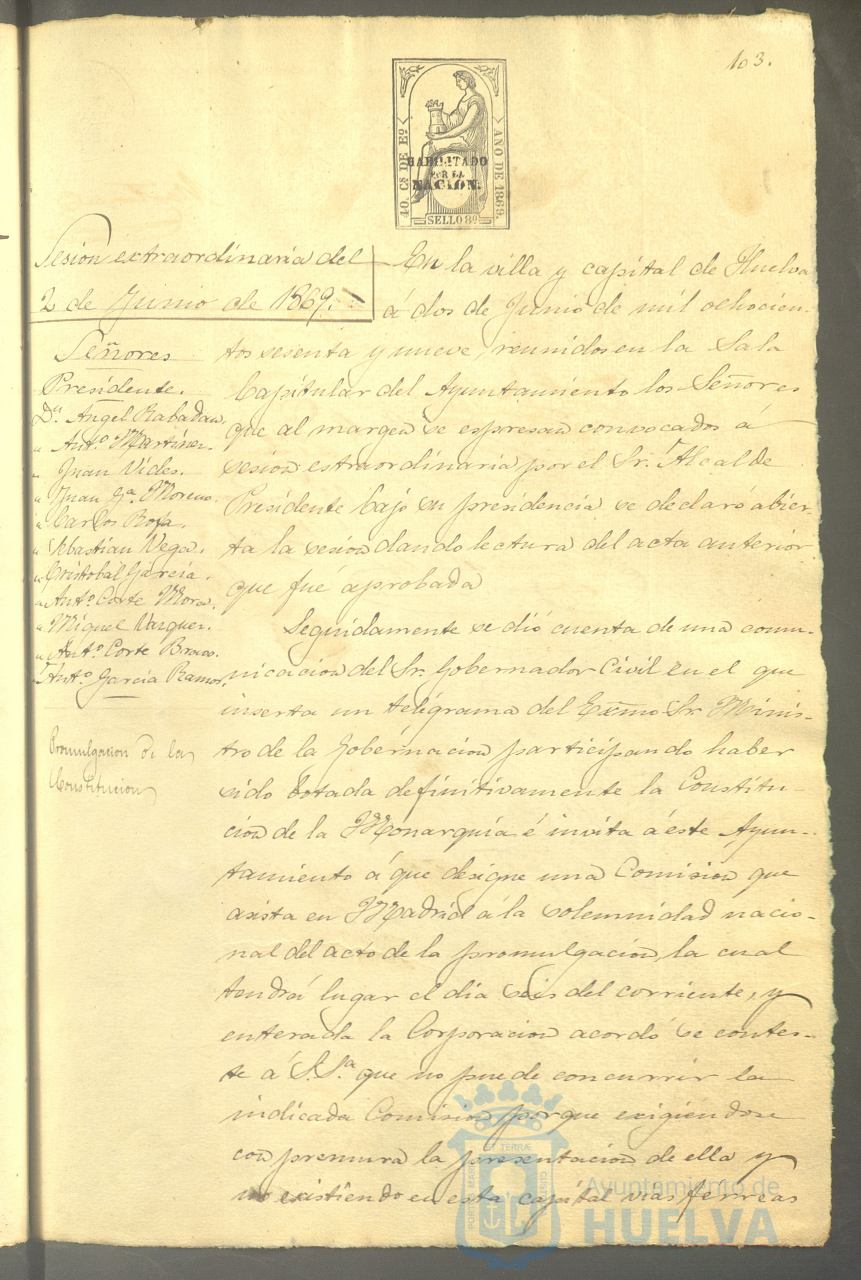 103.
40. Cs DE Eº
AÑO DE 1869.
HABILITADO
POR LA
NACION.
SELLO 8º
Sesion extraordinaria del
2 de Junio de 1869.
Señores
Presidente.
Dn. Angel Rabadan
" Antº Martinez.
" Juan Vides.
" Juan Ja. Moreno.
" Carlos Roja.
" Sebastian Vega.
" Cristobal Garcia.
" Antº Corte Mora.
" Miguel Vazquez.
" Antº Corte Bravo.
" Antº Garcia Ramos.
Promulgacion de la
Constitucion
En la villa y capital de Huelva
á dos de Junio de mil ochocien-
tos sesenta y nueve, reunidos en la Sala
Capitular del Ayuntamiento los Señores
que al margen se espresan convocados á
sesion extraordinaria por el Sr. Alcalde
Presidente bajo su presidencia se declaró abier-
ta la sesion dando lectura del acta anterior
que fué aprobada
Seguidamente se dió cuenta de una comu-
nicacion del Sr. Gobernador Civil en el que
inserta un telégrama del Exmo Sr. Minis-
tro de la Gobernacion participando haber
sido botada definitivamente la Constitu-
cion de la Monarquia é invita á este Ayun-
tamiento á que designe una Comision que
asista en Madrid á la solemnidad nacio-
nal del acto de la promulgacion, la cual
tendrá lugar el dia seis del corriente, y
enterada la Corporacion acordó se contes-
te á S.Sª que no puede concurrir la
indicada Comision porque exigiendose
con premura la presentacion de ella y
no existiendo en esta capital vias ferreas
Ayuntamiento de
HUELVA